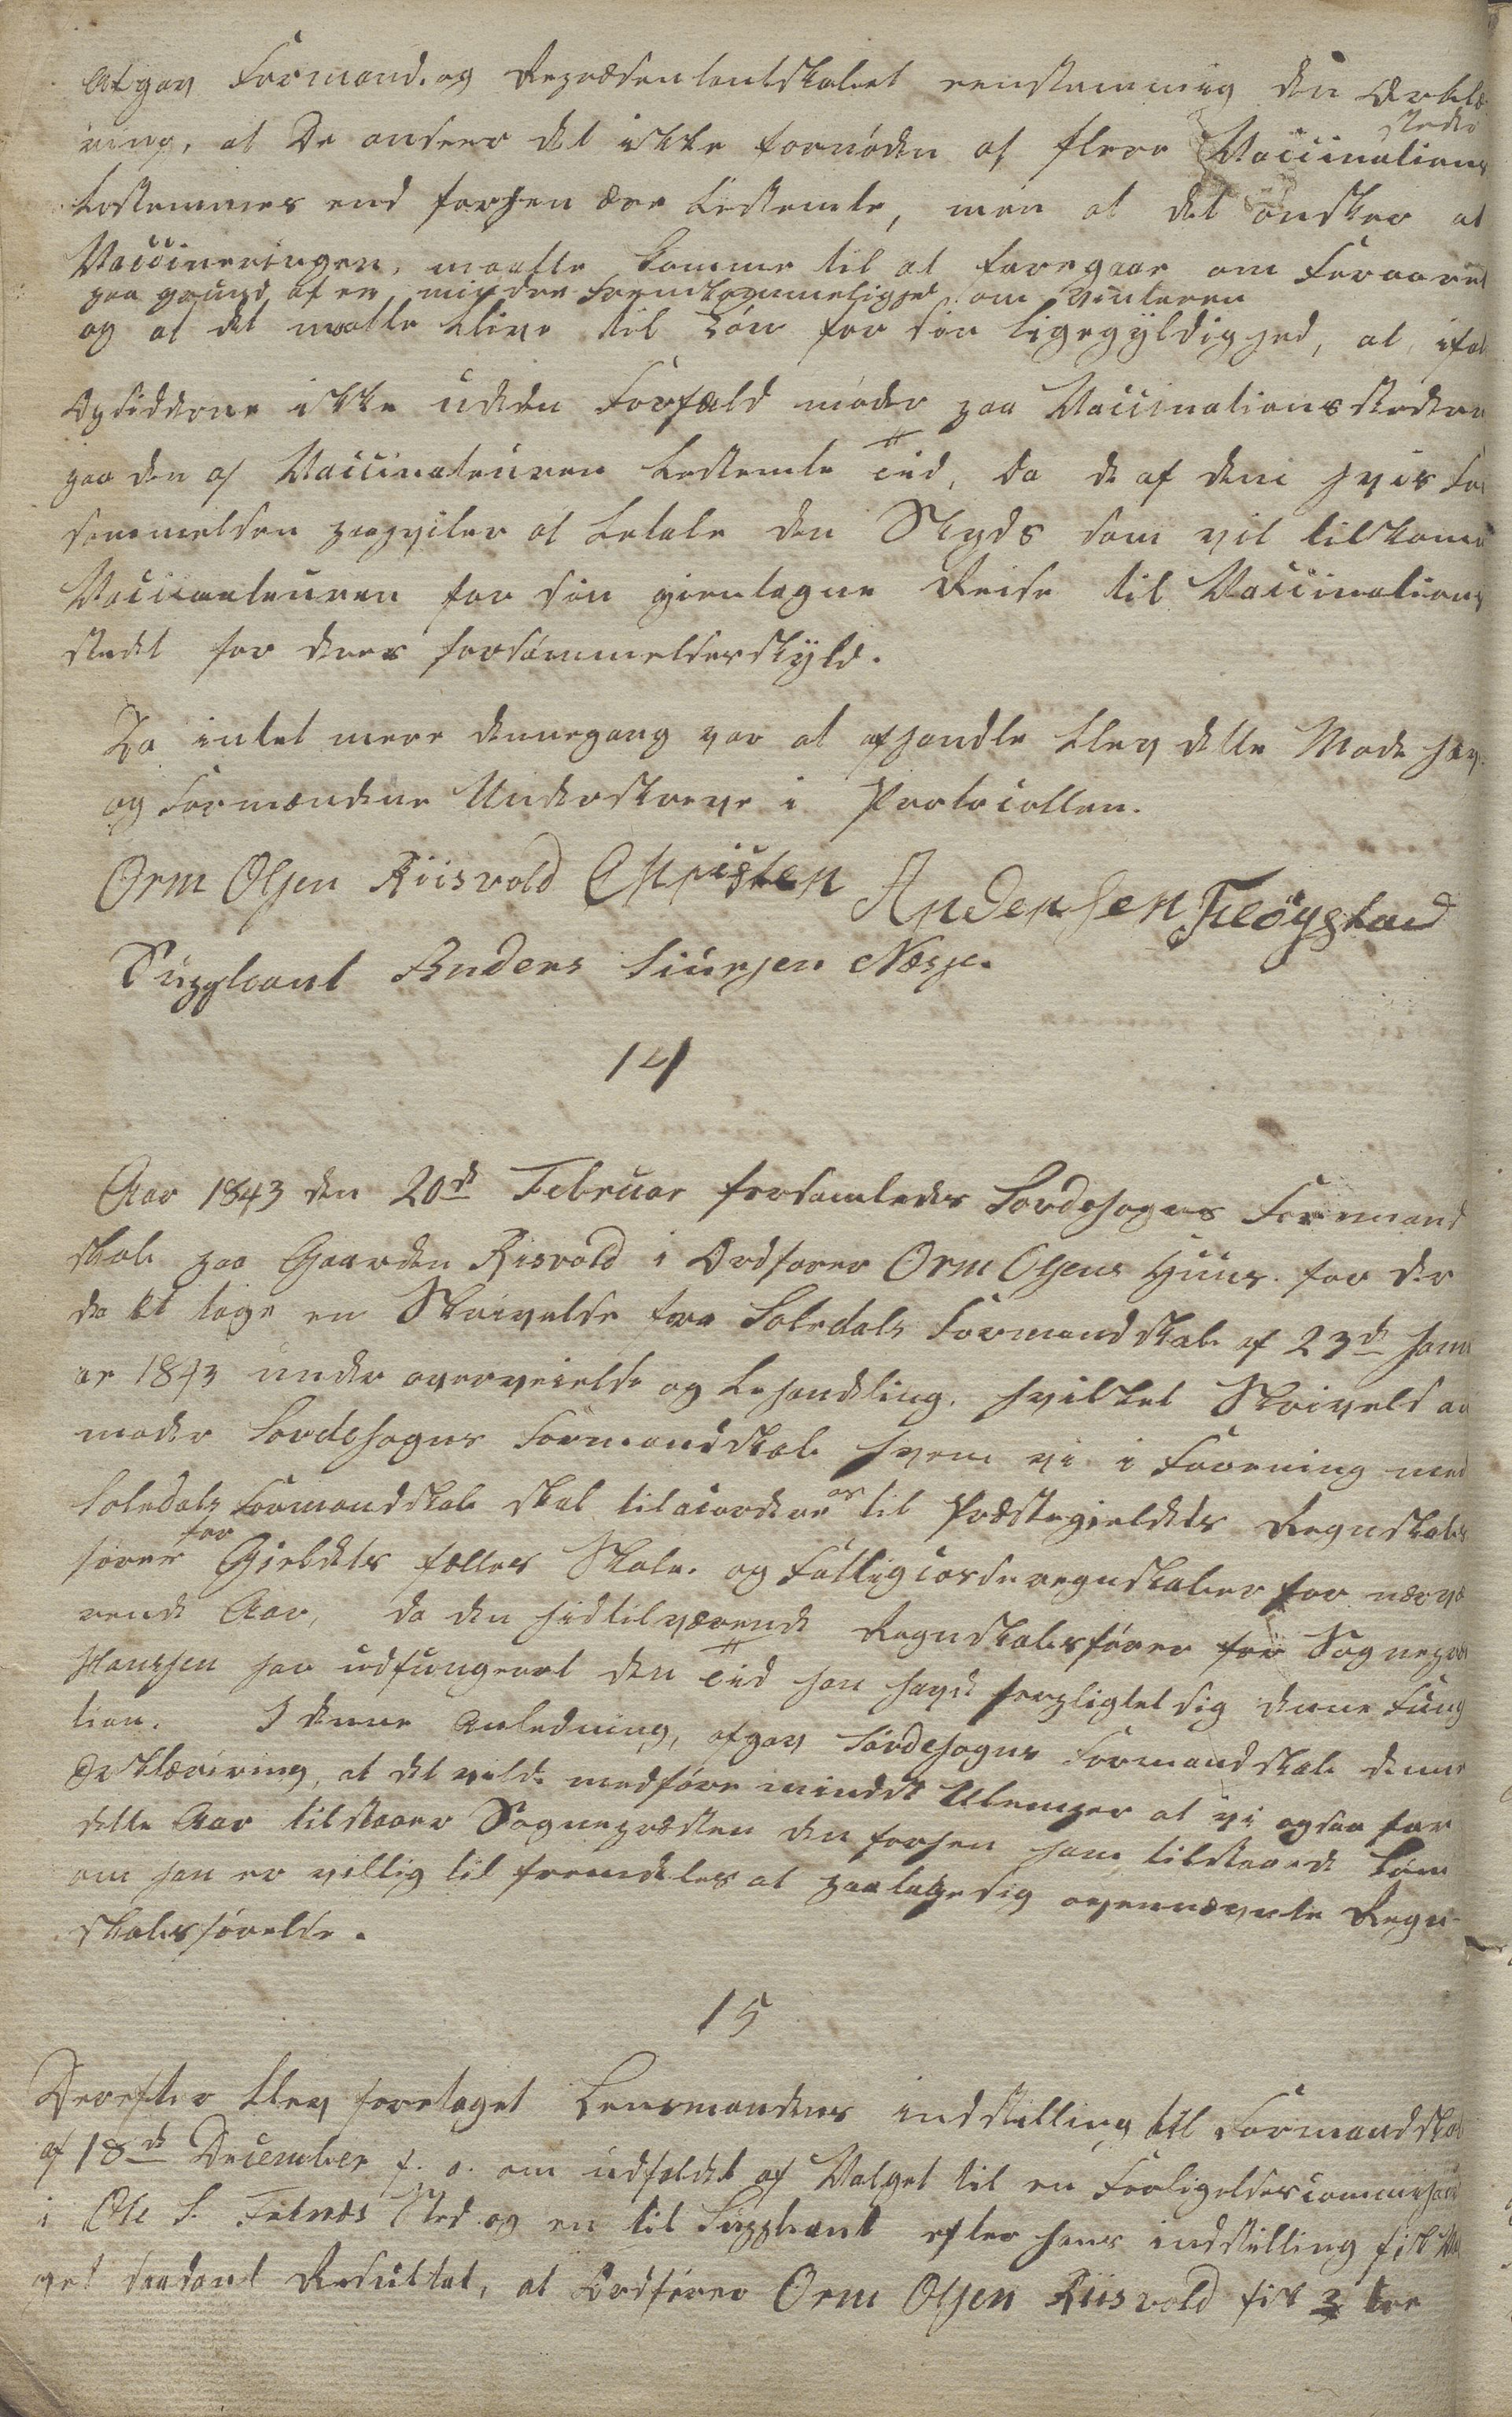 Afgav Formand- og Repræsentantskabet eenstemmig den Erklæ
ring, at De anseer det ikke fornøden at flere Vaccinations
steder
bestemmes end forhen ere bestemte, men at det ønsker at
Vaccineringen, maatte komme til at foregaae om Foraaret
paa grund af en mindre Fremkommelighed om Vinteren
og at det maatte blive til Løn for sin ligegyldighed, at, ifald
Opsidderne ikke uden Forfald møder paa Vaccinationsstederne
paa den af Vaccinateuren bestemte Tid, da de af dem hvis For
sømmelsen paahviler at betale den Skyds som vil tilkomme
Vaccinateuren for sin gientagne Reise til Vaccinations
stedet for deres forsømmelsesskyld.
Da intet mere dennegang var at afhandle blev dette Møde hæv.
og Formændene Underskreve i Protocollen.
Orm Olsen Riisvold Christen Andersen Fløÿstad
Suppleant Anders Siursen Næsje
14
Aar 1843 den 20de Februar forsamledes Søvdesognes Formand
skab paa Gaarden Risvold i Ordfører Orm Olsens Huus. for der
da at tage en Skrivelse fra Formandskab af 23de Janu
ar 1843 under overveielse og behandling. hvilket Skrivelse an
moder Søvdesognes Formandskab hvem vi i Forening med
Formandskab skal tilacordere os til Præstegieldets Regnskabs
fører for Gieldets fælles Skole- og Fattigcasseregnskaber for nærvæ
rende Aar, da den hidtilværende Regnskabsfører for Sognepræst
Hansen har udfungeret den Tid han havde forpligtet sig denne Fung
tion. I denne Anledning, afgav Søvdesognes Formandskab denne
Erklæriring, at det vilde medføre mindst Ulemper at vi ogsaa for
dette Aar tilstaaer Sognepræsten den forhen ham tilstaaede Løn
om han er villig til fremdeles at paatage sig ovennævnte Regn-
skabsførelse.
15
Derefter blev foretaget Lensmandens indstilling til Formandskab
af 18de December f. a. om udfaldet af Valget til en Forligelsescommissair
i Ole S. Sted og en til Suppleant efter hans indstilling fik Val
get saadant Resultat, at Ordfører Orm Olsen Riisvold fik 3 tre